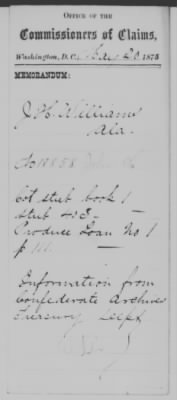 OFFICE OF THE
Commissioners of Claims,
Washington, D.C., 20 1875
MEMORANDUM:
J. H. Williams
Ala.
No 18858
Cot stub book 1
Stub 403 —
Produce Loan No 1
p
Information from
Confederate Archives
Treasury Dept